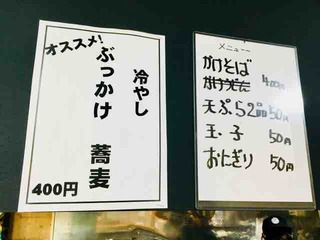 オススメ!
冷やし
ぶっかけ 蕎麦
400円
メニュー
かけそば
かけうどん 400円
天ぷら2品 50円
玉・子 50円
おにぎり 50円